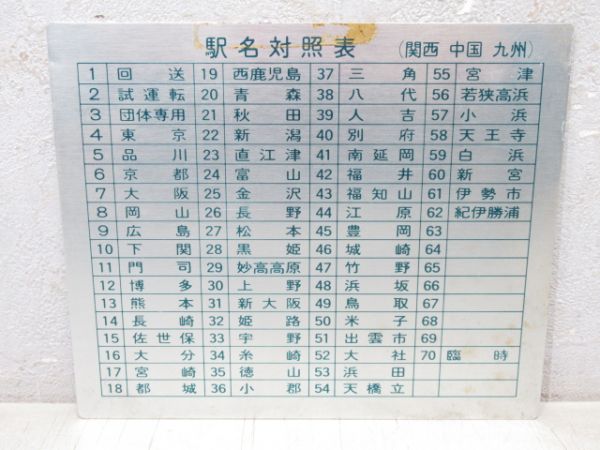 駅名対照表 (関西 中国 九州)
1 回送 19 西鹿児島 37 三角 55 宮津
2 試運転 20 青森 38 八代 56 若狭高浜
3 団体専用 21 秋田 39 人吉 57 小浜
4 東京 22 新潟 40 別府 58 天王寺
5 品川 23 直江津 41 南延岡 59 白浜
6 京都 24 富山 42 福井 60 新宮
7 大阪 25 金沢 43 福知山 61 伊勢市
8 岡山 26 長野 44 江原 62 紀伊勝浦
9 広島 27 松本 45 豊岡 63
10 下関 28 黒姫 46 城崎 64
11 門司 29 妙高高原 47 竹野 65
12 博多 30 上野 48 浜坂 66
13 熊本 31 新大阪 49 鳥取 67
14 長崎 32 姫路 50 米子 68
15 佐世保 33 宇野 51 出雲市 69
16 大分 34 糸崎 52 大社 70 臨時
17 宮崎 35 徳山 53 浜田
18 都城 36 小郡 54 天橋立